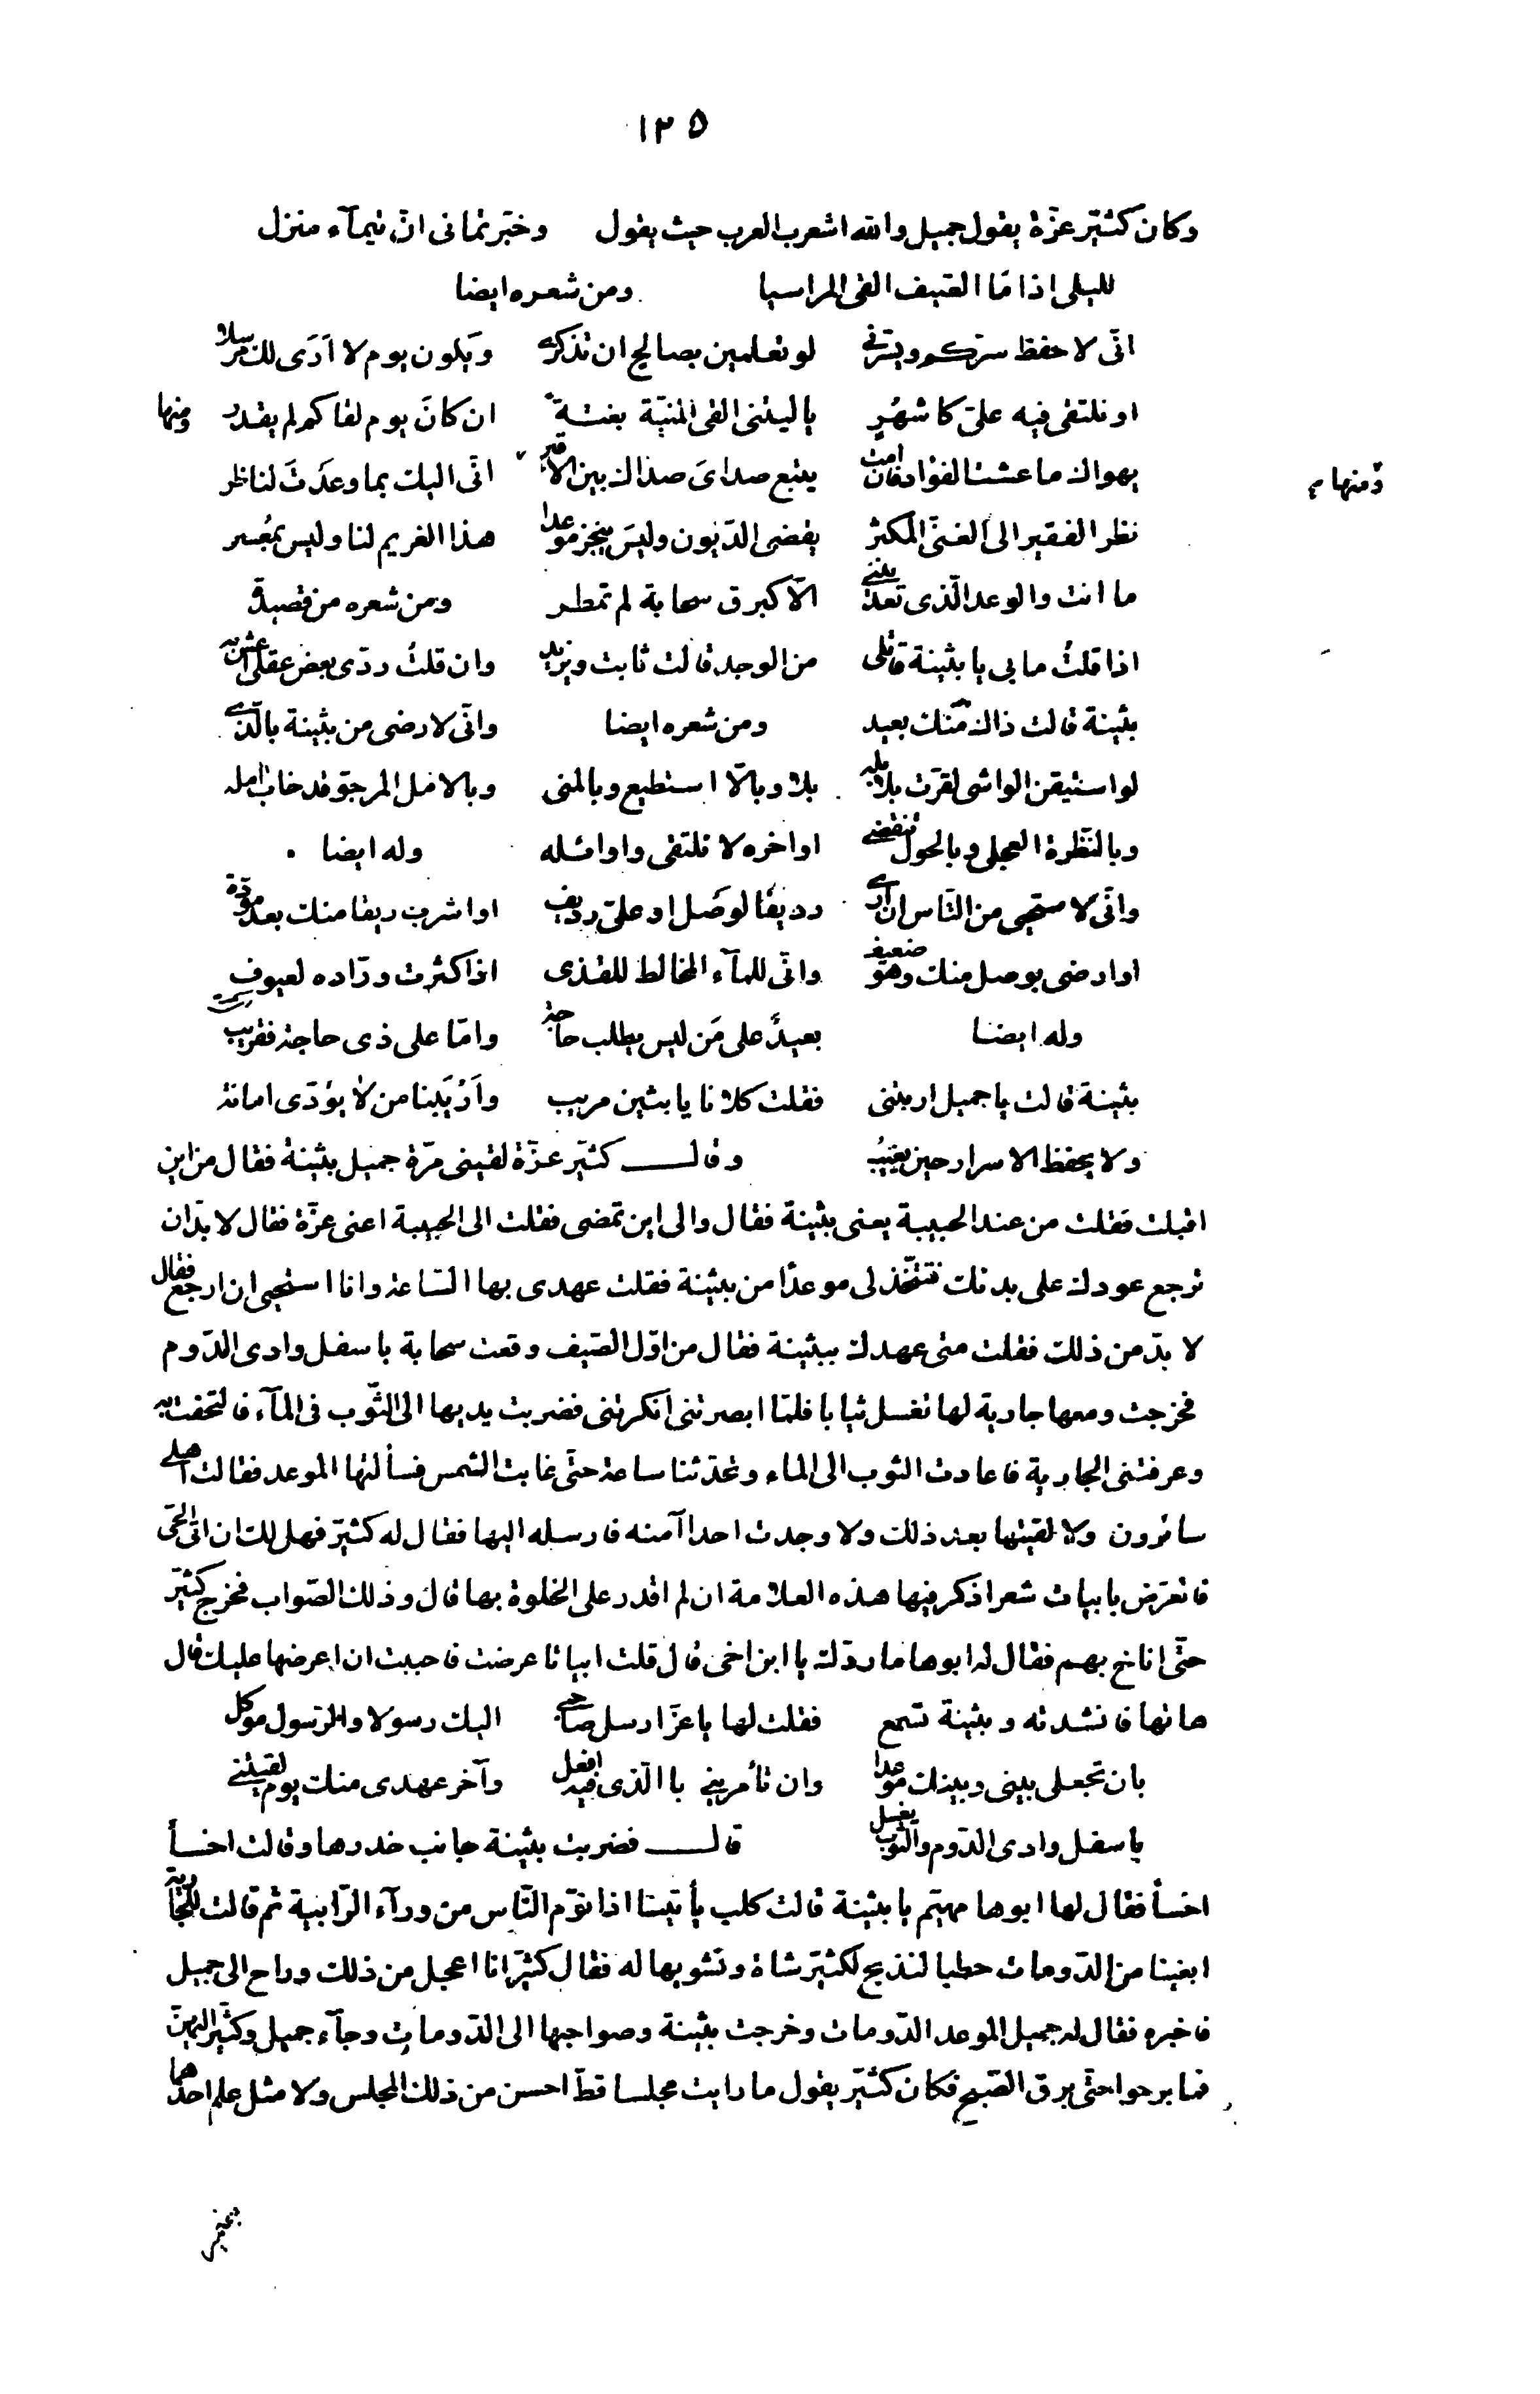 ١٢٥
وكان كثيّر عزّة يقول جميل والله اشعر العرب حيث يقول وخبّرتمانى انّ تيمآء منزل
لليلى اذا مَا الصّيف القى المراسيا ومن شعره ايضا
انّى لاحفظ سرّكم ويسرّنى لو تعلمين بصالح ان تذكرى ويكون يوم لا اَرَى لك مرسلا
او نلتقى فيه علىّ كاشهُرٍ ياليتنى القى المنيّة بغتةً ان كانَ يوم لقاكم لم يقدر ومنها
يهواك ما عشت الفؤاد فان امت يتبع صداىَ صداك بين الاقبر انّى اليك بما وعدَتَ لناظر
ومنها
نظر الفقير الى الغنىّ المكثر يقضى الدّيون وليسَ ينجز موعدا هذا الغريم لنا وليس بمُعسر
ما انت والوعد الّذى تعديننى الّا كبرق سحابة لم تمطر ومن شعره من قصيدة
اذا قلتُ ما بى يا بثينة قاتلى من الوجد قالت ثابت ويزيد وان قلتُ ردّى بعض عقلى اعش به
بثينة قالت ذاك منك بعيد ومن شعره ايضا وانّى لارضى من بثينة بالّذى
لو استيقن الواشى لقرّت بلابله بلا وبالّا استطيع وبالمنى وبالامل المرجوّ قد خاب امله
وبالنّظرة العجلى وبالحول تنقضى اواخره لا نلتقى واوائله وله ايضا
وانّى لاستحيى من النّاس ان ارى رديفا لوصل او علىّ رديف او اشرب ريقا منك بعد مودّة
او ارضى بوصل منك وهو ضعيف وانّى للمآء المخالط للقذى اذا كثرت ورّاده لعيوف
وله ايضا بعيدٌ على مَن ليس يطلب حاجة وامّا على ذى حاجة فقريب
بثينة قالت يا جميل اربتنى فقلت كلانا يا بثين مريب واَرْيَبنا من لا يؤدّى امانة
ولا يحفظ الاسرار حين يغيبُ وقال كثيّر عزّة لقينى مرّة جميل بثينة فقال من اين
اقبلت فقلت من عند الحبيبة يعنى بثينة فقال والى اين تمضى فقلت الى الحبيبة اعنى عزّة فقال لا بدّ ان
ترجع عودك على بدئك فتتّخذ لى موعدًا من بثينة فقلت عهدى بها السّاعة وانا استحيى ان ارجع فقال
لا بدّ من ذلك فقلت متى عهدك ببثينة فقال من اوّل الصّيف وقعت سحابة باسفل وادى الدّوم
فخرجت ومعها جارية لها تغسل ثيابا فلمّا ابصرتنى انكرتنى فضربت يديها الى الثّوب فى المآء فالتحفت به
وعرفتنى الجارية فاعادت الثوب الى الماء وتحدّثنا ساعة حتّى غابت الشمس فسألتها الموعد فقالت اهلى
سائرون ولا لقيتها بعد ذلك ولا وجدت احدا آمنه فارسله اليها فقال له كثيّر فهل لك ان اتى الحىّ
فاتعرّض بابيات شعر اذكر فيها هذه العلامة ان لم اقدر على الخلوة بها قال وذلك الصّواب فخرج كثيّر
حتّى اناخ بهم فقال له ابوها ما ردّك يا ابن اخى قال قلت ابياتا عرضت فاحببت ان اعرضها عليك قال
هاتها فانشدته وبثينة تسمع فقلت لها يا عزّ ارسل صاحبى اليك رسولا والرّسول موكل
بان تجعلى بينى وبينك موعدا وان تأمرينى بالّذى فيه افعل وآخر عهدى منك يوم لقيتنى
باسفل وادى الدّوم والثوب يغسل قال فضربت بثينة جانب خدرها وقالت اخسأ
اخسأ فقال لها ابوها مهيّم يا بثينة قالت كلب يأتينا اذا نوّم النّاس من ورآء الرّابية ثم قالت للجارية
ابغينا من الدّومات حطبا لنذبح لكثيّر شاة ونشويها له فقال كثيّر انا اعجل من ذلك وراح الى جميل
فاخبره فقال له جميل الموعد الدّومات وخرجت بثينة وصواحبها الى الدّومات وجآء جميل وكثيّر اليهنّ
فما برحوا حتّى برق الصّبح فكان كثيّر يقول ما رايت مجلسا قطّ احسن من ذلك المجلس ولا مثل علم احدهما